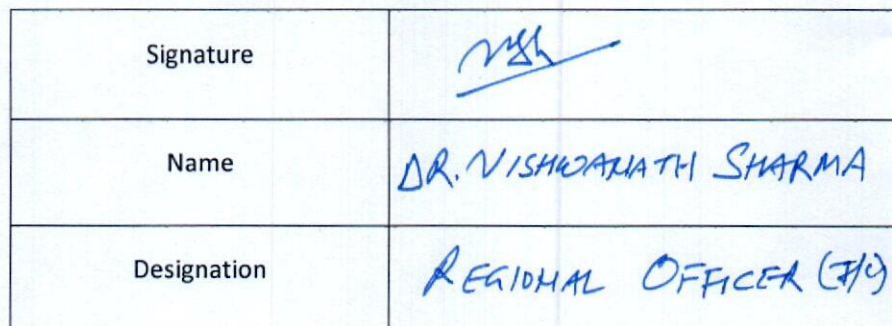 Signature
Name DR. VISHWANATH SHARMA
Designation REGIONAL OFFICER (I/C)